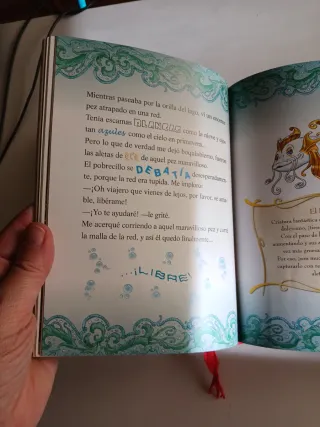 Mientras paseaba por la orilla del lago, vi un enorme
pez atrapado en una red.
Tenía escamas BLANCAS como la nieve y
tan azules como el cielo en primavera.
Pero lo que de verdad me dejó boquiabierto, fueron
las aletas de ORO de aquel pez maravilloso.
El pobrecillo se DEBATÍA desesperadamen-
te, porque la red era tupida. Me imploró:
—¡Oh viajero que vienes de lejos, por favor, se ama-
ble, libérame!
—¡Yo te ayudaré! —le grité.
Me acerqué corriendo a aquel maravilloso pez y corté
la malla de la red, y así él quedó finalmente...
...¡LIBRE!
El
Criatura fantástica
Con el paso de